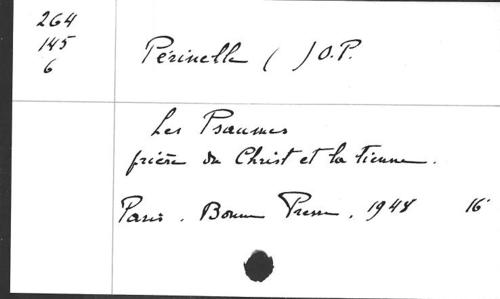 264
145
6
Périnelle ( ) O.P.
Les Psaumes
prière du Christ et la tienne.
Paris. Bonne Presse. 1948 16°